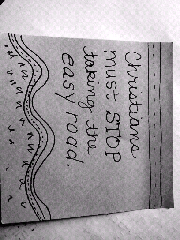 Christians
must STOP
taking the
easy road.